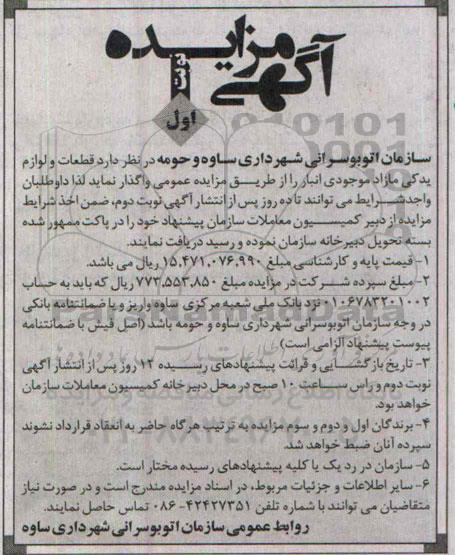 آگهی مزایده
نوبت
اول
سازمان اتوبوسرانی شهرداری ساوه و حومه در نظر دارد قطعات و لوازم
یدکی مازاد موجودی انبار را از طریق مزایده عمومی واگذار نماید لذا داوطلبان
واجدشرایط می توانند تا ده روز پس از انتشار آگهی نوبت دوم، ضمن اخذ شرایط
مزایده از دبیر کمیسیون معاملات سازمان پیشنهاد خود را در پاکت ممهور شده
بسته تحویل دبیرخانه سازمان نموده و رسید دریافت نمایند.
۱- قیمت پایه و کارشناسی مبلغ ۱۵,۴۷۱,۰۷۶,۹۹۰ ریال می باشد.
۲- مبلغ سپرده شرکت در مزایده مبلغ ۷۷۳,۵۵۳,۸۵۰ ریال که باید به حساب
۰۱۰۶۷۸۳۲۰۱۰۰۲ نزد بانک ملی شعبه مرکزی ساوه واریز و یا ضمانتنامه بانکی
در وجه سازمان اتوبوسرانی شهرداری ساوه و حومه باشد (اصل فیش یا ضمانتنامه
پیوست پیشنهاد الزامی است)
۳- تاریخ بازگشایی و قرائت پیشنهادهای رسیده ۱۲ روز پس از انتشار آگهی
نوبت دوم و راس ساعت ۱۰ صبح در محل دبیرخانه کمیسیون معاملات سازمان
خواهد بود.
۴- برندگان اول و دوم و سوم مزایده به ترتیب هرگاه حاضر به انعقاد قرارداد نشوند
سپرده آنان ضبط خواهد شد.
۵- سازمان در رد یک یا کلیه پیشنهادهای رسیده مختار است.
۶- سایر اطلاعات و جزئیات مربوط، در اسناد مزایده مندرج است و در صورت نیاز
متقاضیان می توانند با شماره تلفن ۴۲۴۲۷۳۵۱- ۰۸۶ تماس حاصل نمایند.
روابط عمومی سازمان اتوبوسرانی شهرداری ساوه